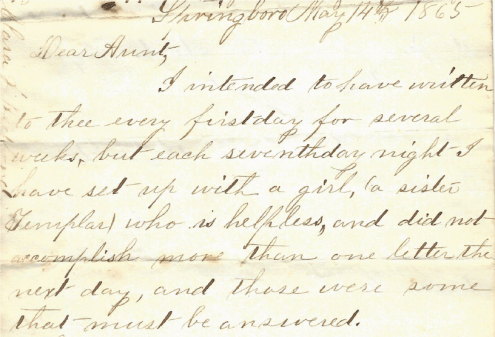 Springboro May 14th 1865
Dear Aunt,
I intended to have written
to thee every firstday for several
weeks, but each seventhday night I
have set up with a girl, (a sister
Templar) who is helpless, and did not
accomplish more than one letter the
next day, and those were some
that must be answered.